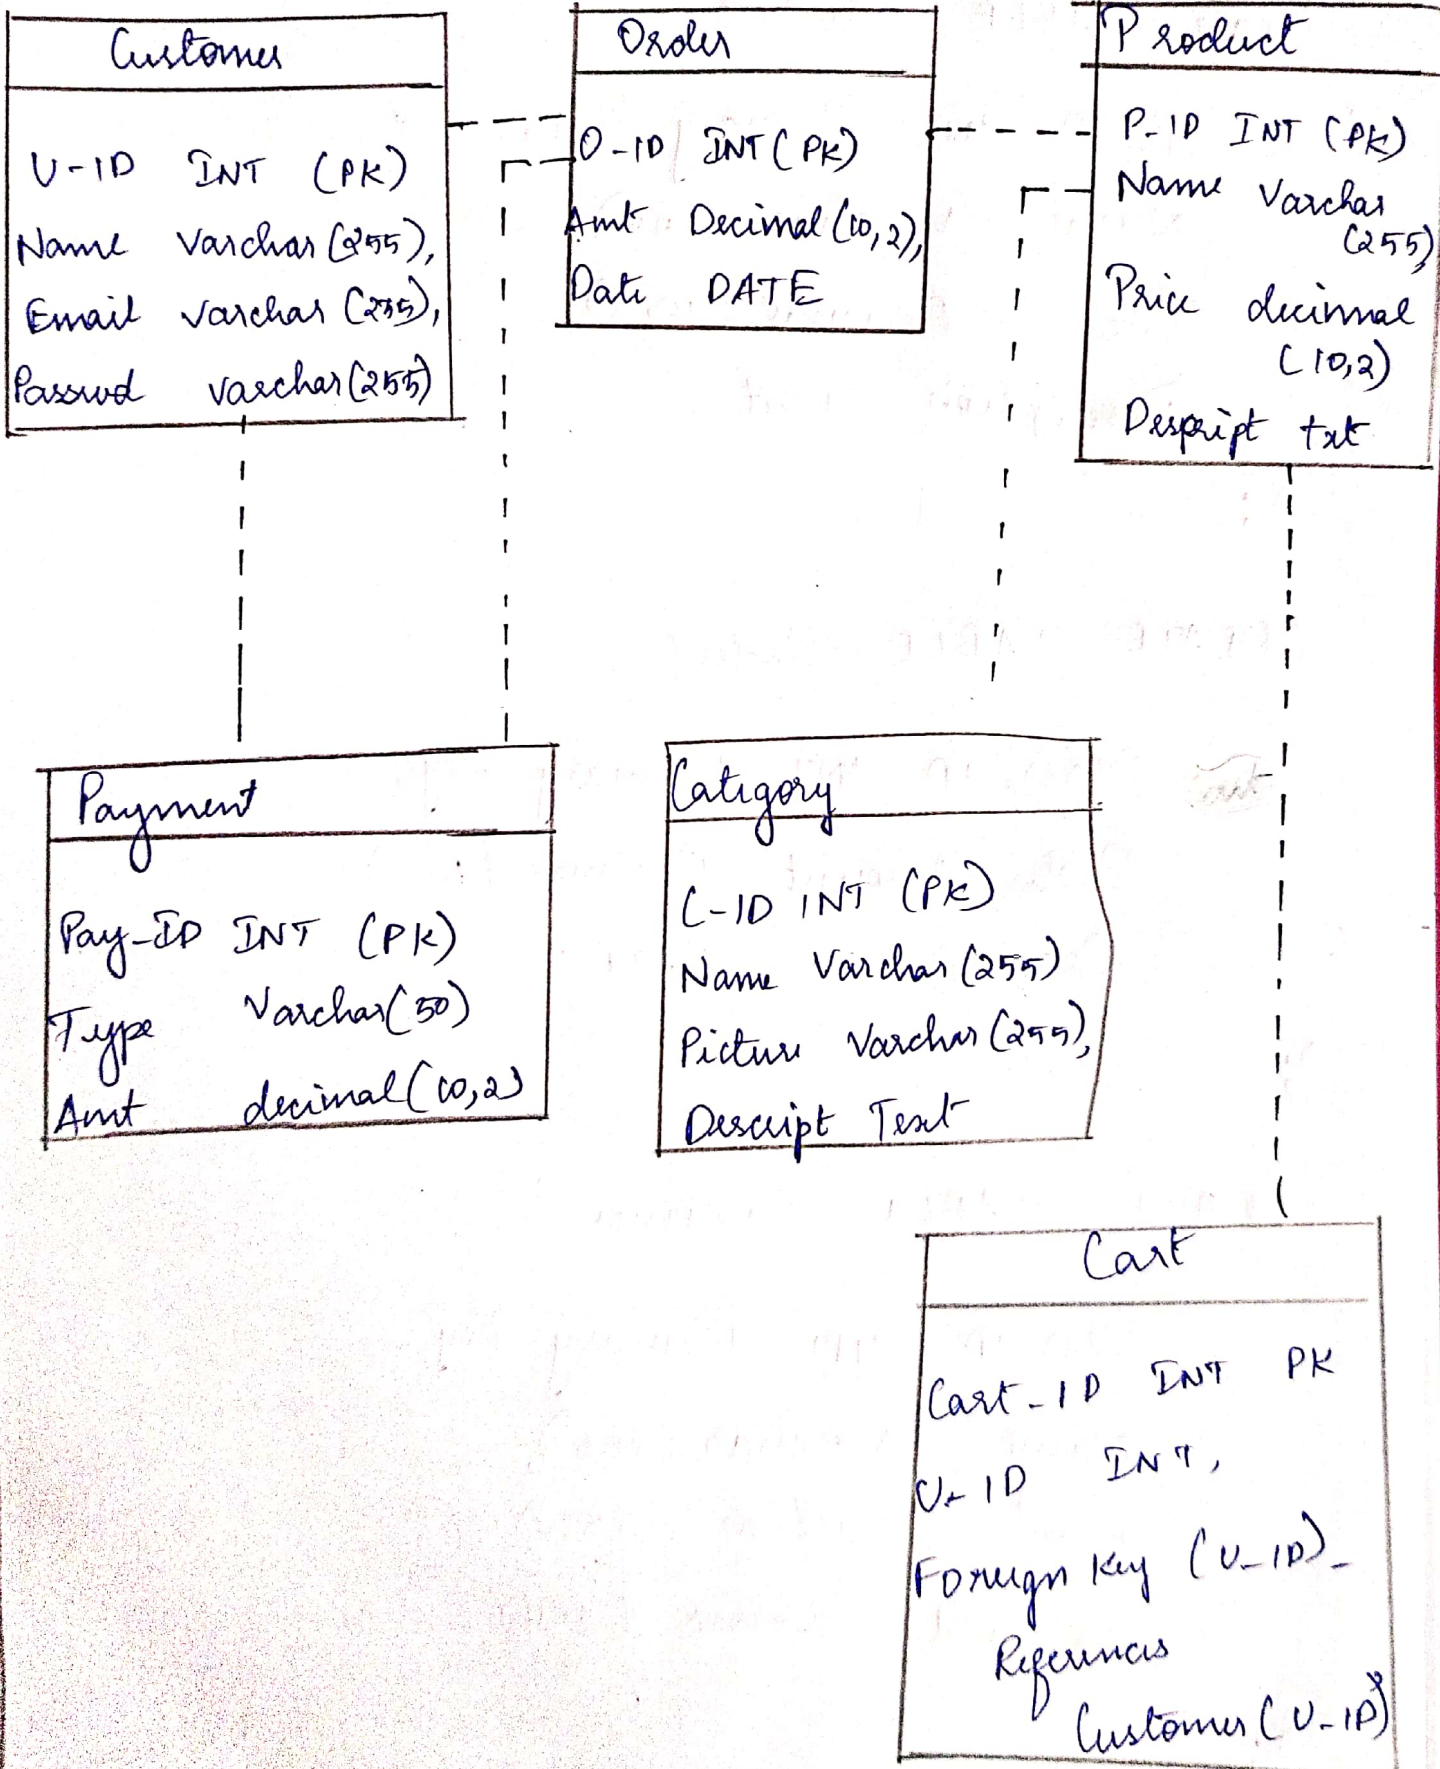 Customer
U-ID INT (PK)
Name Varchar (255),
Email Varchar (255),
Passwd varchar (255)
Order
O-ID INT (PK)
Amt Decimal (10,2),
Date DATE
Product
P-ID INT (PK)
Name Varchar
(255),
Price decimal
(10,2)
Descript txt
Payment
Pay-ID INT (PK)
Type Varchar(50)
Amt decimal (10,2)
Category
C-ID INT (PK)
Name Varchar (255)
Picture Varchar (255),
Descript Text
Cart
Cart-ID INT PK
U-ID INT,
Foreign Key (U-ID)-
References
Customer (U-ID)